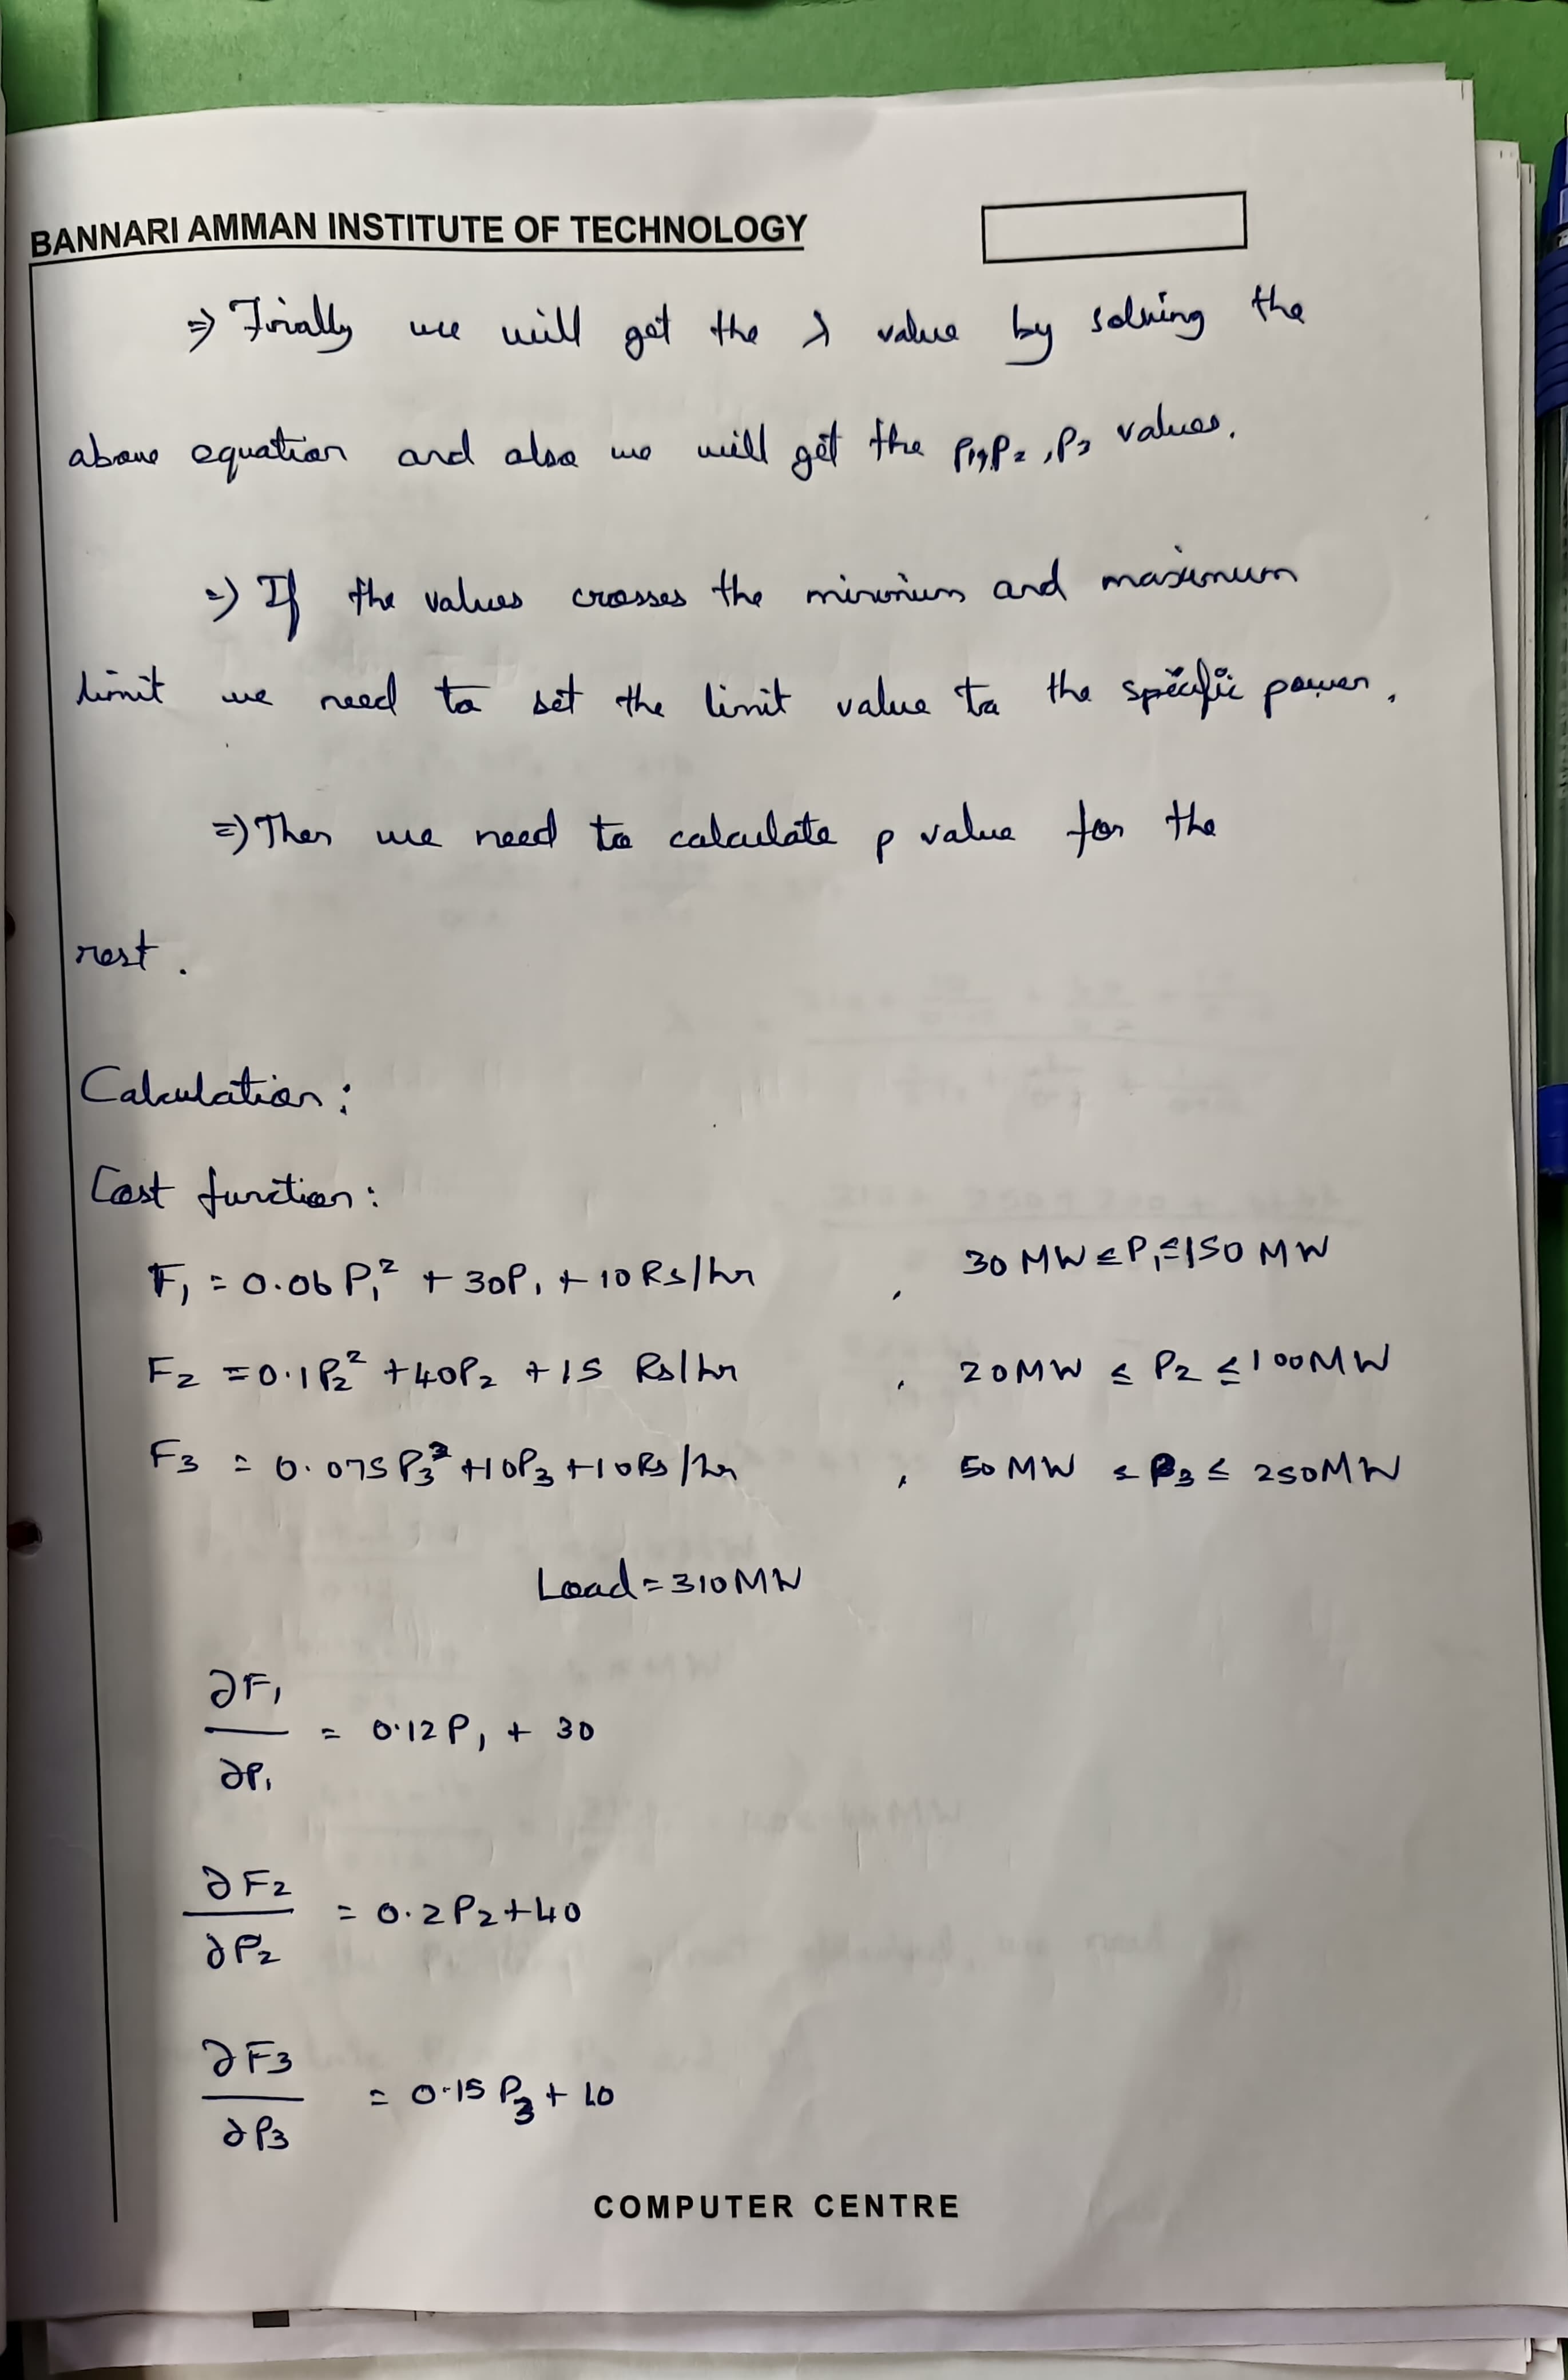 BANNARI AMMAN INSTITUTE OF TECHNOLOGY
=> Finally we will get the λ value by solving the
above equation and also we will get the P1, P2, P3 values.
=> If the values crosses the minimum and maximum
limit we need to set the limit value to the specific power.
=> Then we need to calculate P value for the
rest.
Calculation:
Cost function:
F₁ = 0.06 P₁² + 30P₁ + 10 Rs/hr , 30 MW ≤ P₁ ≤ 150 MW
F₂ = 0.1 P₂² + 40P₂ + 15 Rs/hr , 20 MW ≤ P₂ ≤ 100 MW
F₃ = 0.075 P₃² + 10P₃ + 10 Rs/hr , 50 MW ≤ P₃ ≤ 250 MW
Load = 310 MW
∂F₁/∂P₁ = 0.12 P₁ + 30
∂F₂/∂P₂ = 0.2 P₂ + 40
∂F₃/∂P₃ = 0.15 P₃ + 10
COMPUTER CENTRE